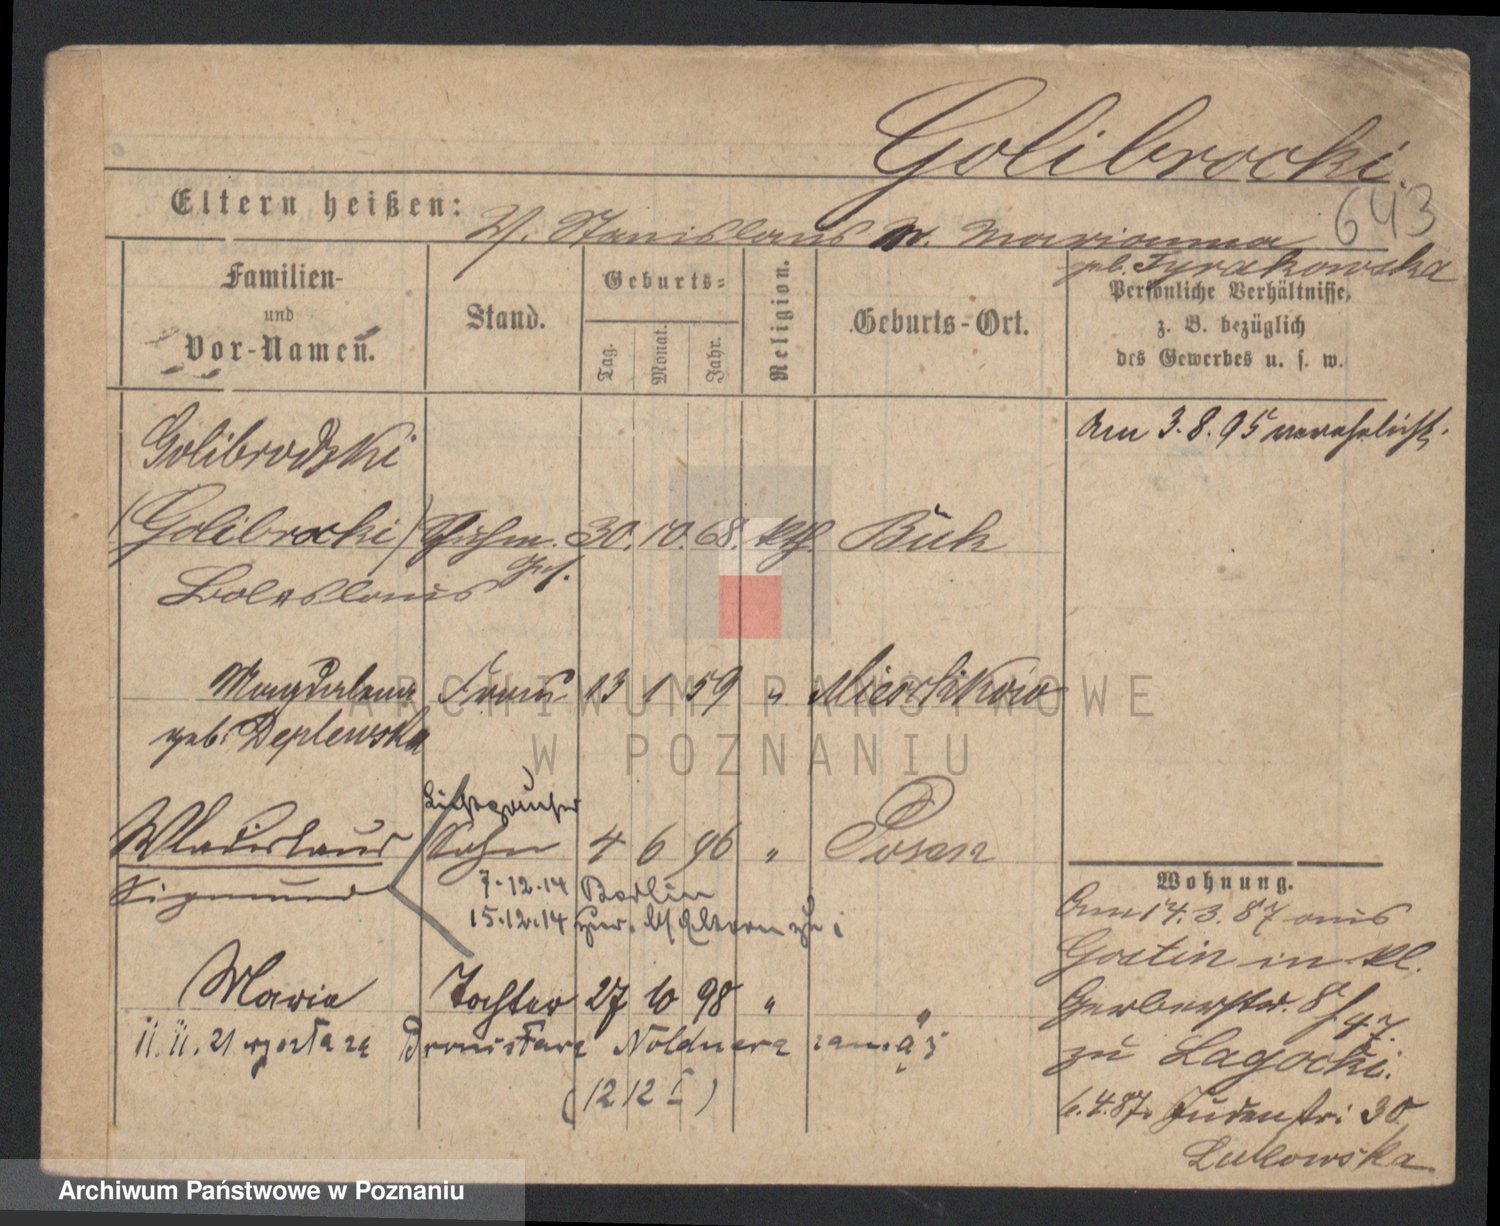 Golibrocki.
643
Eltern heißen:
V. Stanislaus M. Marianna
geb. Tyrakowska
Familien-
und
Vor-Namen.
Stand.
Geburts-
Tag.
Monat.
Jahr.
Religion.
Geburts-Ort.
Persönliche Verhältnisse,
z. B. bezüglich
des Gewerbes u. s. w.
Am 3.8.95 verehelicht.
Golibrodzki
(Golibrocki) Schuhm. 30. 10. 68. kth. Buk
Boleslaus
Magdalena Frau 13 1 59 "
geb. Deplewska
Wladislaus Sohn 4 6 96 " Posen
Sigmund
7.12.14 Berlin
15.12.14 zur. Eltern
Maria Tochter 27 10 98 " "
11.11.21 wyszła za Bronisława Noldnera zamąż
(12 12 I)
Wohnung.
Am 14.3.87 aus
Gostin in kl.
Gerberstr. 8
zu Lagocki.
6.4.87. Judenstr. 30
Lukowska
ARCHIWUM PAŃSTWOWE
W POZNANIU
Archiwum Państwowe w Poznaniu